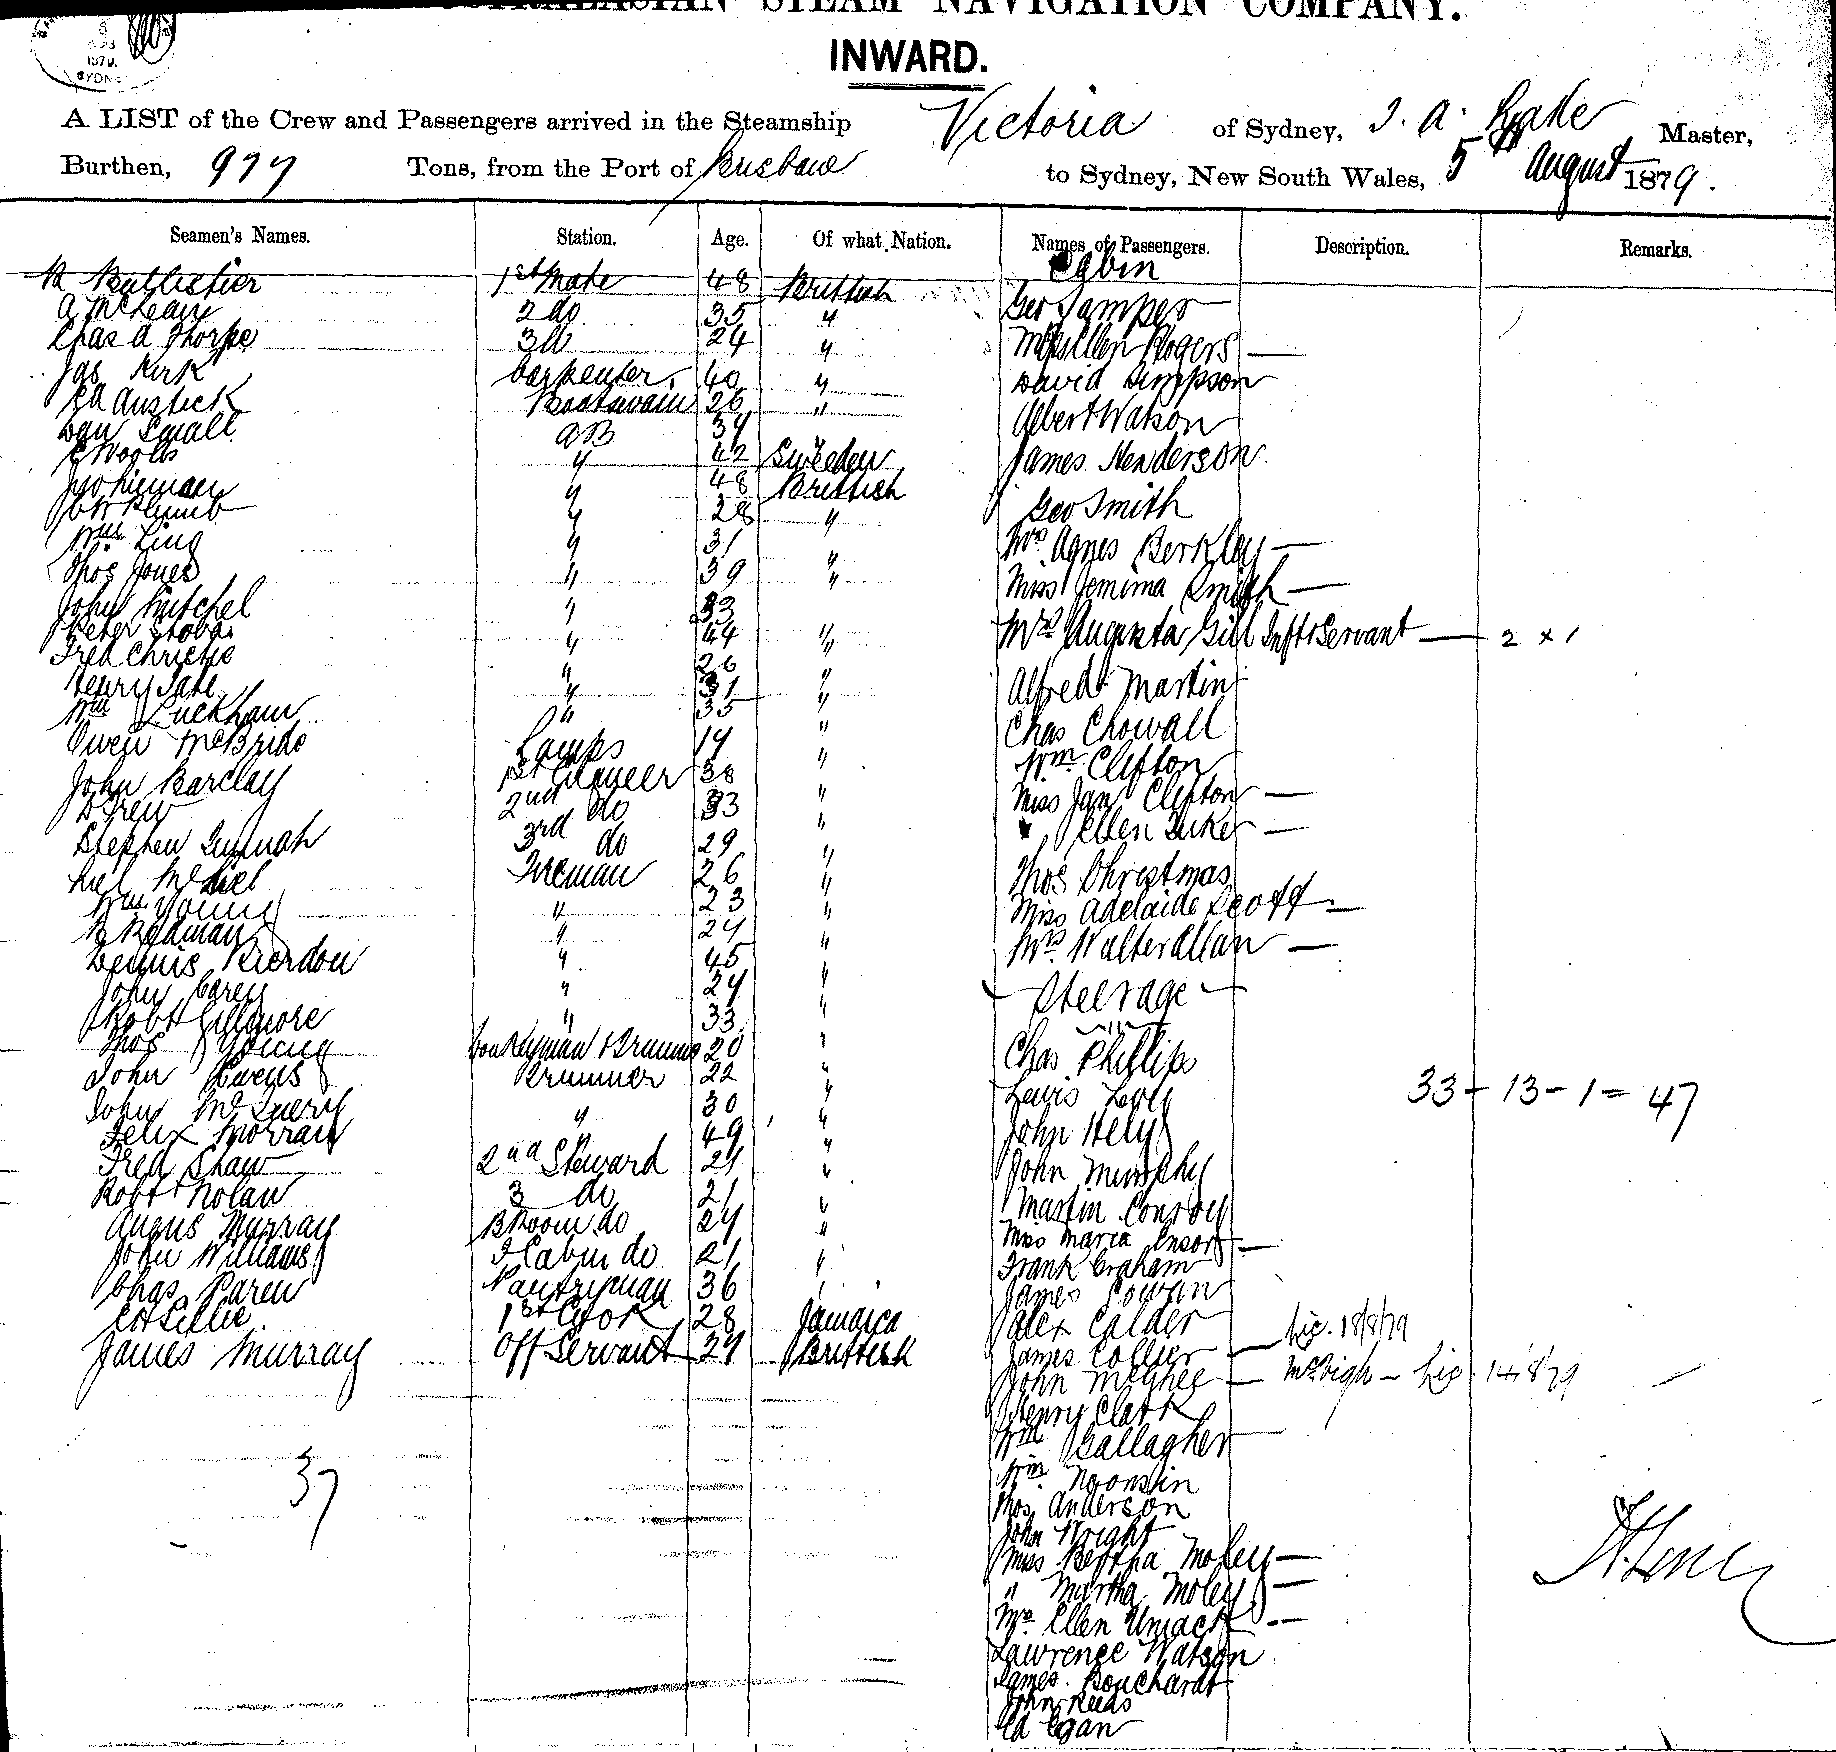 STEAM NAVIGATION COMPANY.
INWARD.
1879
SYDN
A LIST of the Crew and Passengers arrived in the Steamship Victoria of Sydney, J. A. Lake Master,
Burthen, 977 Tons, from the Port of Brisbane to Sydney, New South Wales, 5 August 1879.
Seamen's Names. Station. Age. Of what Nation. Names of Passengers. Description. Remarks.
Cabin
1st Mate 48 Brittish
A McLean 2 do 35 " Geo
Chas A Thorpe 3 do 24 " Ellen Rogers —
Jas Kirk Carpenter 40 " David Simpson
Ed Austick Boatswain 26 " Albert Watson
Dan Small AB 34
" 42 Sweden James Henderson
" 48 Brittish
Plumb " 28 " Geo Smith
Wm Ling " 31 " Mrs Agnes Berkley —
Thos Jones " 39 " Miss Jemima Smith —
John Mitchel " 33
Peter " 44 " Mrs Augusta Gill Inft & Servant — 2 x 1
Fred Christie " 26 "
Henry Tate " 31 " Alfred Martin
Wm Luckham " 35 "
Owen McBride Lamps " Chas Chowall
John Barclay 1st Engineer 38 " Wm Clifton
Drew 2nd do 33 " Miss Jane Clifton —
Stephen 3rd do 29 " " Ellen —
Fireman 26 " Thos Christmas
Wm Young " 23 " Miss Adelaide Scott —
R Redman " 24 " Mrs Walter Allan —
Dennis Rierdon " 45 "
John Carey " 24 " Steerage
Robt Gillmore " 33 "
Thos Young 20 " Chas Phillips
John Owens Trimmer 22 " Lewis Levy
John " 30 " John Hely
33 - 13 - 1 = 47
Felix Morran " 49 "
Fred Shaw 2nd Steward 24 " John Murphy
Robt Nolan 3 do 21 " Martin Conroy
Angus Murray B Room do 24 " Miss Maria Ensor —
John Williams F Cabin do 21 " Frank Graham
Chas Paren Pantryman 36 " James Cowan
1st Cook 28 Jamaica Alex Calder
James Murray Off Servant 24 Brittish James Collier — 18/8/79
John McGhee — 14/8/79
Henry Clark
Wm Gallagher
37
Wm
Thos Anderson
John Wright
Miss Bertha Moley —
" Martha Moley —
Mrs Ellen Uniack —
Lawrence Watson
James Bouchardt
John Reeds
Ed Egan